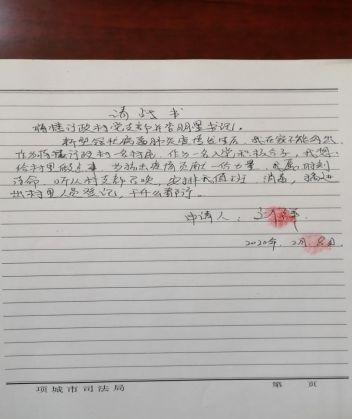 请战书
行政村党支部并李明星书记：
新型冠状病毒肺炎疫情发生后，我在家不能外出，
作为行政村一名村民，作为一名入党积极分子，我想
给村里做点事，为抗击疫情贡献一份力量，我愿时刻
待命，听从村支部召唤，安排我值班，消毒，
村里人员登记，干什么都行。
申请人：
2020年2月8日
项城市司法局
第 页